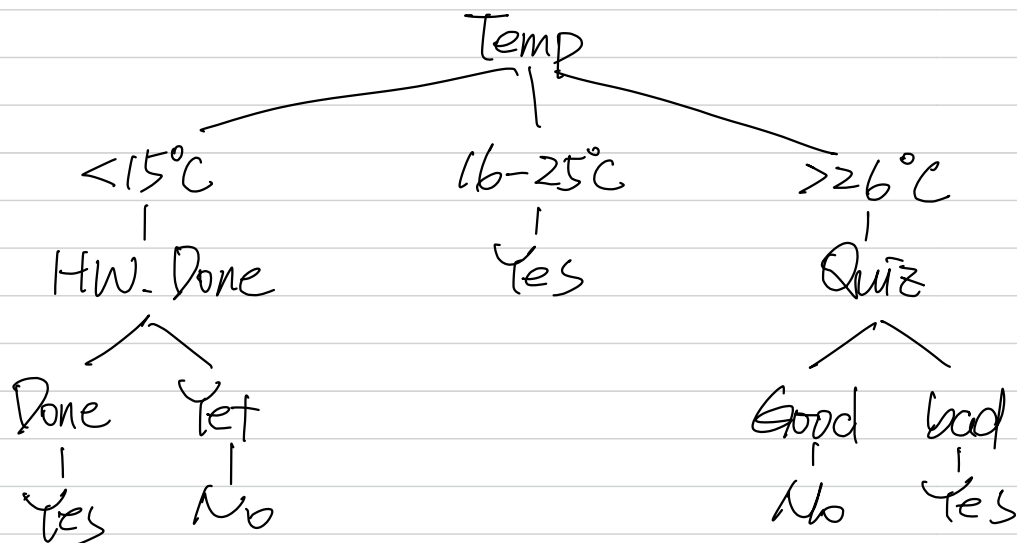 Temp
<15°C 16-25°C >26°C
HW. Done Yes Quiz
Done Yet Good bad
Yes No No Yes